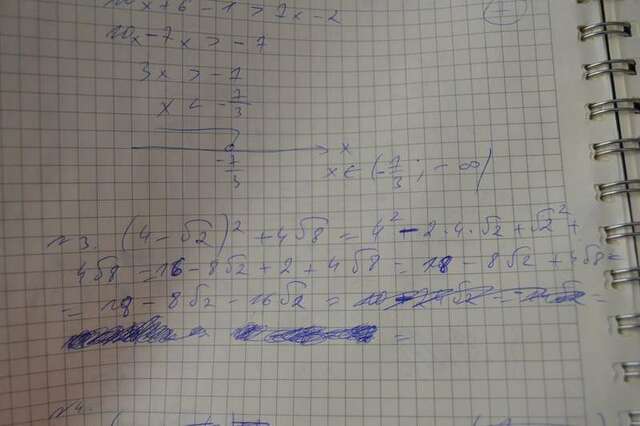 10x + 6 - 1 > 7x - 2
10x - 7x > - 7
3x > - 7
x < - 7/3
x
- 7/3
x ∈ (- 7/3 ; - ∞)
N 3. (4 - √2)² + 4√8 = 4² - 2 · 4 · √2 + √2² +
4√8 = 16 - 8√2 + 2 + 4√8 = 18 - 8√2 + 4√8 =
= 18 - 8√2 - 16√2 =
=
N 4.